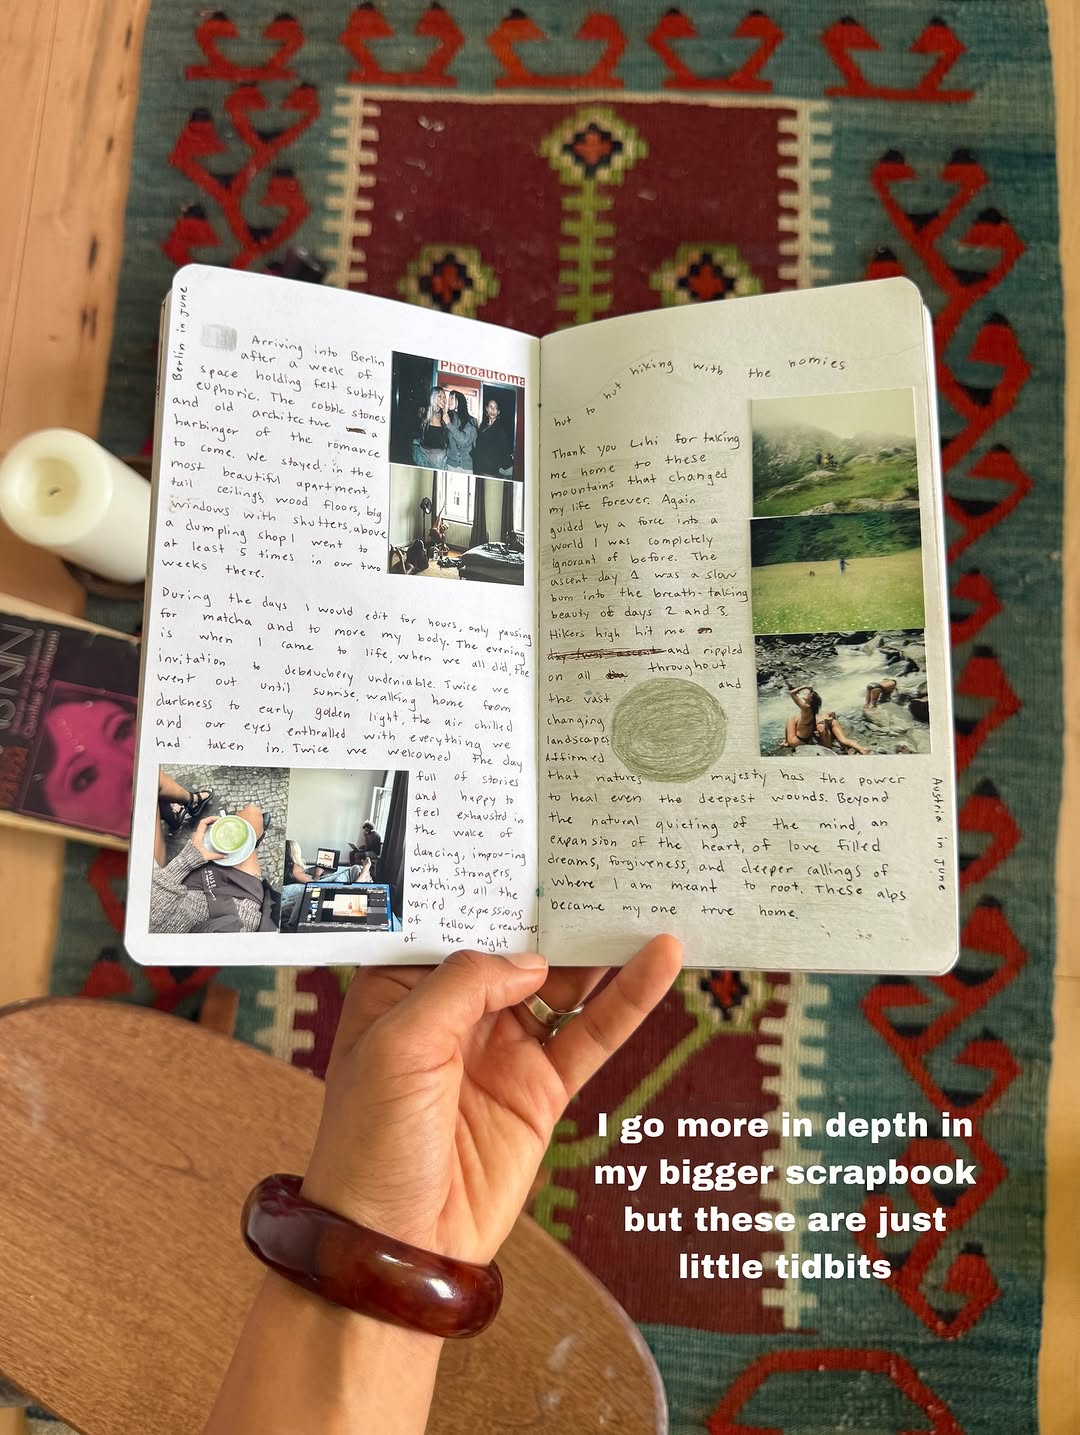 Berlin in June
Arriving into Berlin
after a week of
space holding felt subtly
euphoric. The cobble stones
and old architecture a
harbinger of the romance
to come. We stayed in the
most beautiful apartment,
tall ceilings, wood floors, big
windows with shutters, above
a dumpling shop I went to
at least 5 times in our two
weeks there.
Photoautoma
During the days I would edit for hours, only pausing
for matcha and to move my body. The evening
is when I came to life, when we all did, the
invitation to debauchery undeniable. Twice we
went out until sunrise, walking home from
darkness to early golden light, the air chilled
and our eyes enthralled with everything we
had taken in. Twice we welcomed the day
full of stories
and happy to
feel exhausted in
the wake of
dancing, improv-ing
with strangers,
watching all the
varied expressions
of fellow creatures
of the night
hut to hut hiking with the homies
Thank you Lihi for taking
me home to these
mountains that changed
my life forever. Again
guided by a force into a
world I was completely
ignorant of before. The
ascent day 1 was a slow
burn into the breath-taking
beauty of days 2 and 3.
Hikers high hit me
and rippled
on all throughout
the vast and
changing
landscapes
Affirmed
that natures majesty has the power
to heal even the deepest wounds. Beyond
the natural quieting of the mind, an
expansion of the heart, of love filled
dreams, forgiveness, and deeper callings of
where I am meant to root. These alps
became my one true home.
Austria in June
I go more in depth in
my bigger scrapbook
but these are just
little tidbits